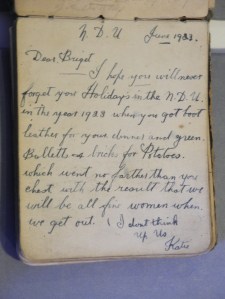 N. D. U June 1923.
Dear Briget
I hope you will never
forget your Holiday's in the N. D. U.
in the year 1923 when you got boot
leather for your dinner and green
Bullets and bricks for Potatoes.
which went no farther than your
chest with the result that we
will be all fine women when
we get out. ( I dont think
Up Us
Katie